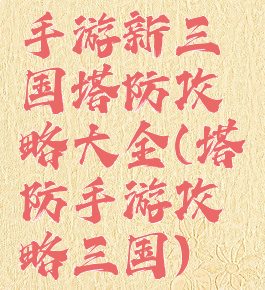 手游新三
国塔防攻
略大全(塔
防手游攻
略三国)